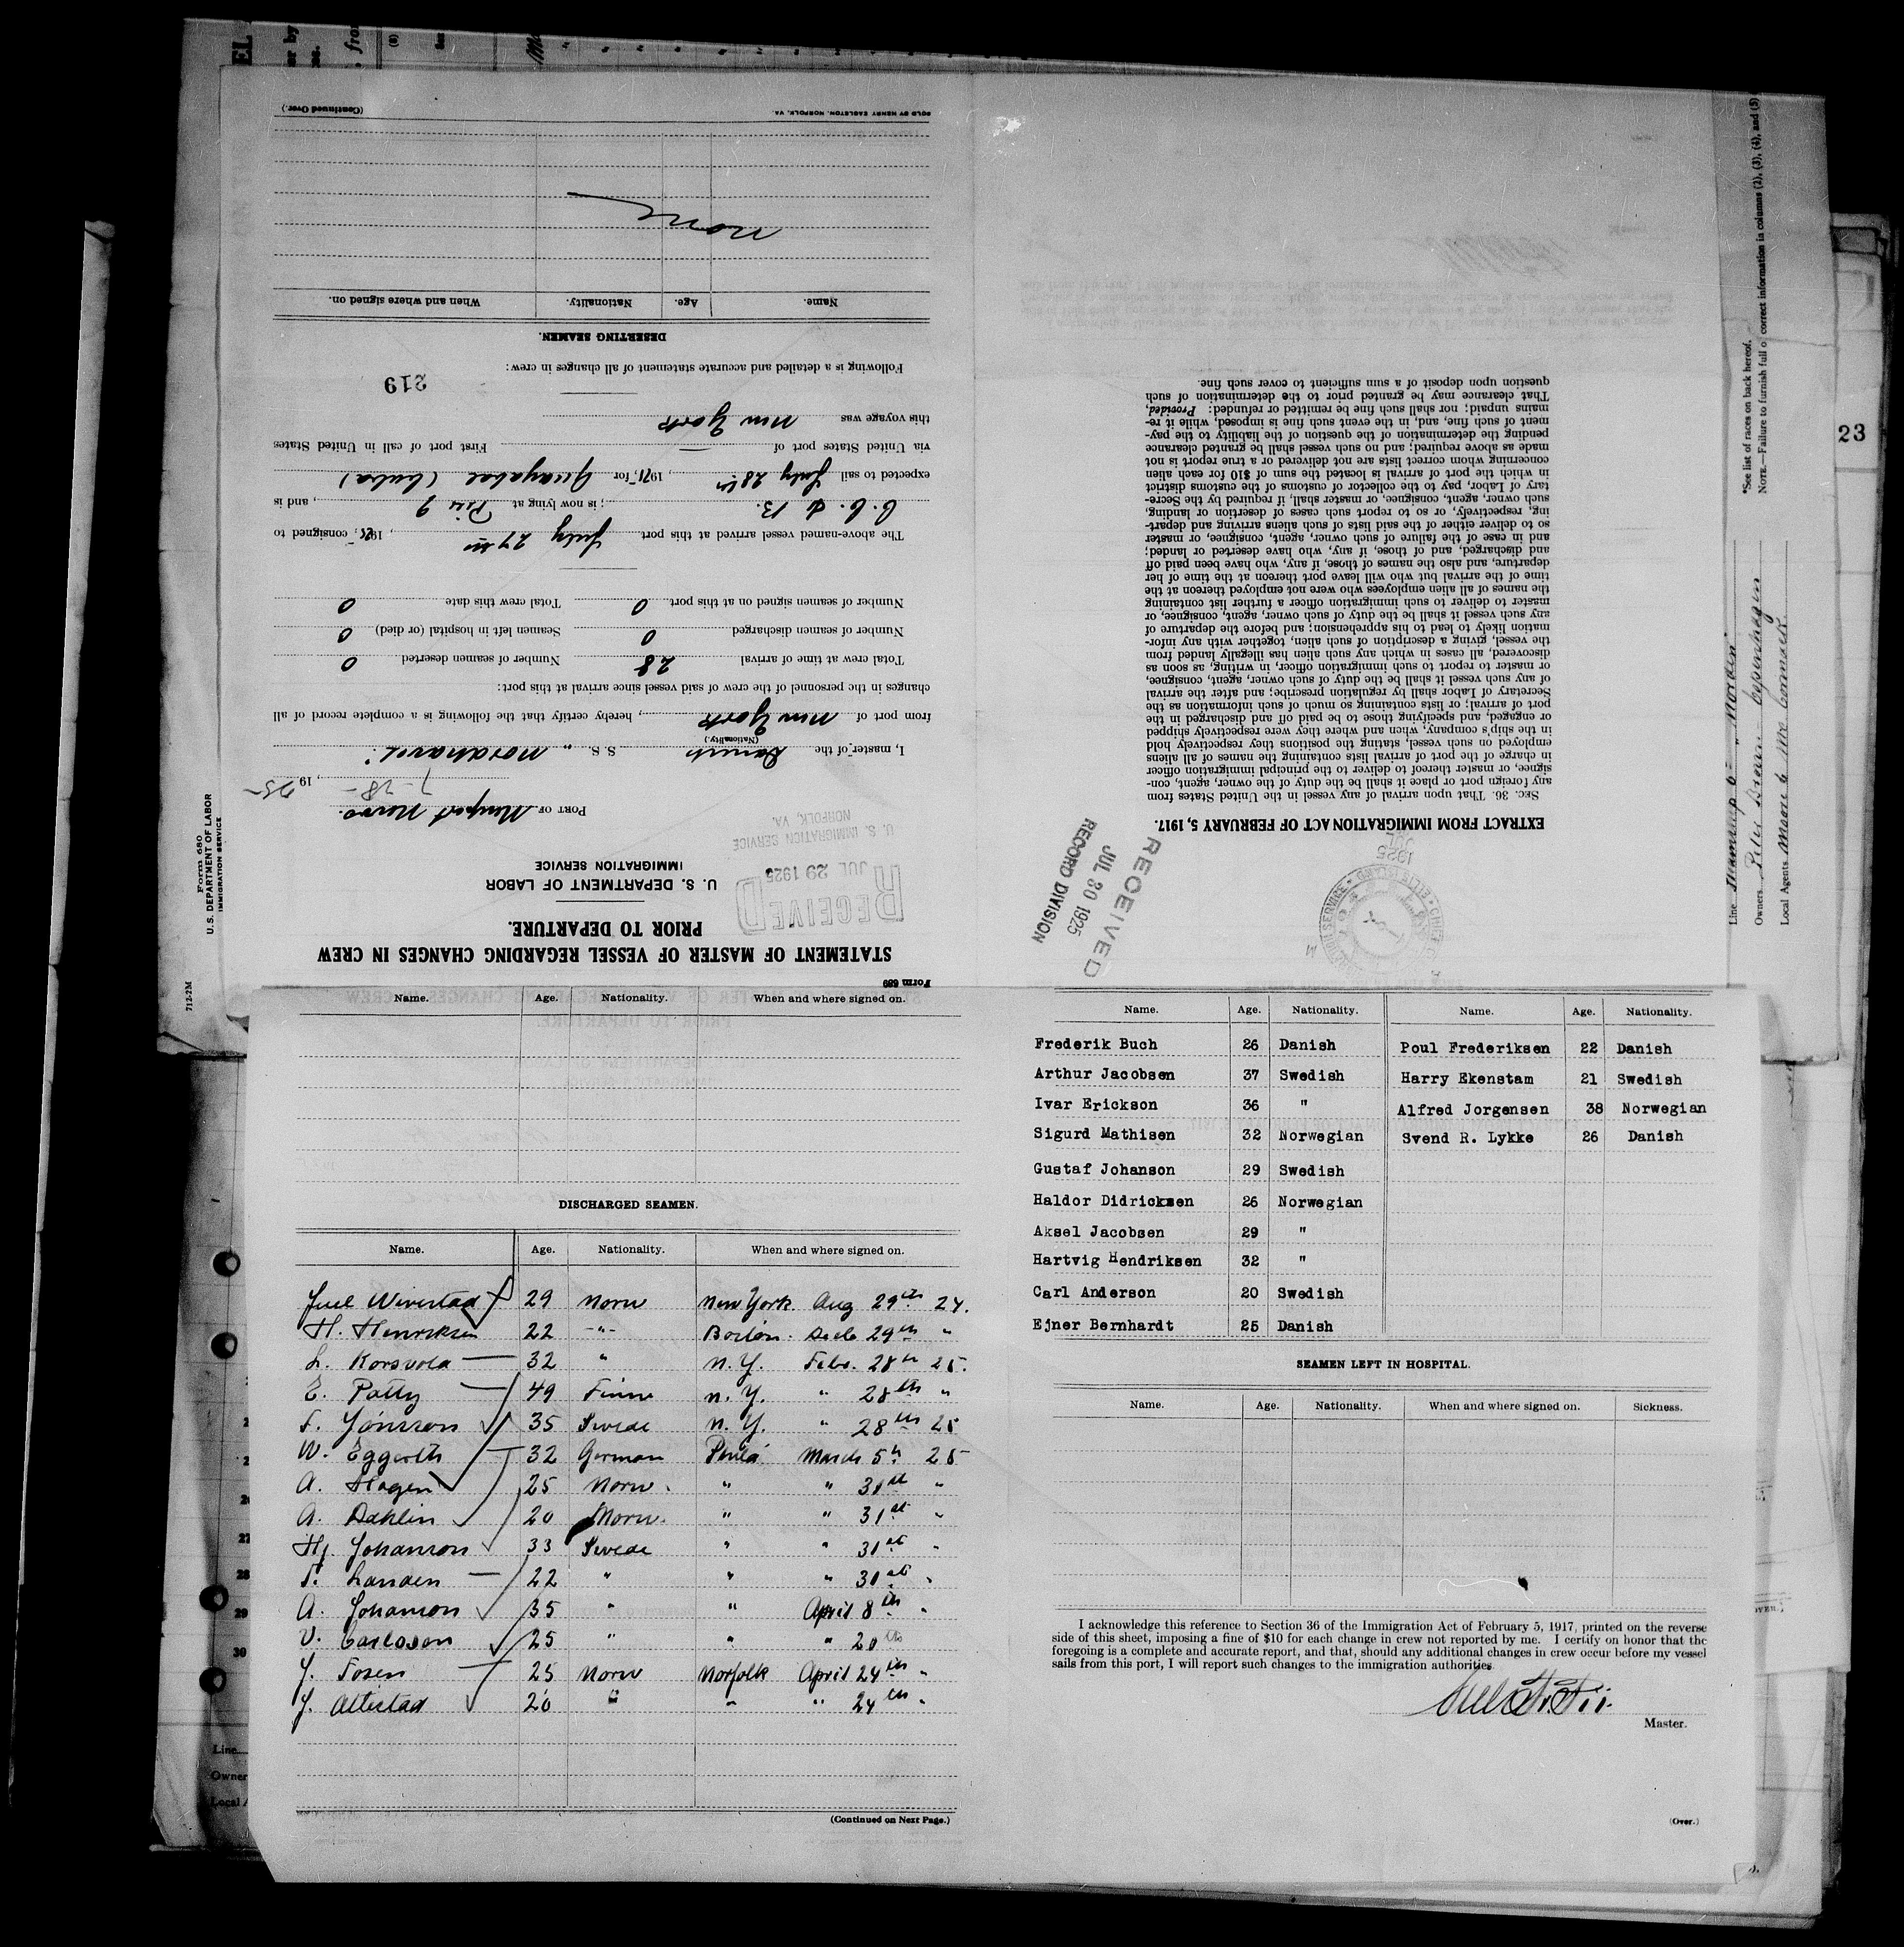 Form 689
STATEMENT OF MASTER OF VESSEL REGARDING CHANGES IN CREW
PRIOR TO DEPARTURE.
U. S. DEPARTMENT OF LABOR
IMMIGRATION SERVICE
RECEIVED
JUL 29 1925
U. S. IMMIGRATION SERVICE
NORFOLK, VA.
PORT OF Newport News. 7-28-, 1925
I, master of the Danish S. S. "Nordhavet"
(Nationality.)
from port of New York, hereby certify that the following is a complete record of all
changes in the personnel of the crew of said vessel since arrival at this port:
Total crew at time of arrival 28 Number of seamen deserted 0
Number of seamen discharged 0 Seamen left in hospital (or died) 0
Number of seamen signed on at this port 0 Total crew this date 0
The above-named vessel arrived at this port July 27th, 1925, consigned to
C. C. & B.; is now lying at Pier 9, and is
expected to sail July 28th, 1925, for (Cuba)
via United States port of — First port of call in United States
this voyage was New York
219
Following is a detailed and accurate statement of all changes in crew:
DESERTING SEAMEN.
Name. Age. Nationality. When and where signed on.
None
SOLD BY HENRY EAGLESTON, NORFOLK, VA. (Continued Over.)
EXTRACT FROM IMMIGRATION ACT OF FEBRUARY 5, 1917.
SEC. 36. That upon arrival of any vessel in the United States from
any foreign port or place it shall be the duty of the owner, agent, con-
signee, or master thereof to deliver to the principal immigration officer
in charge of the port of arrival lists containing the names of all aliens
employed on such vessel, stating the positions they respectively hold
in the ship's company, when and where they were respectively shipped
or engaged, and specifying those to be paid off and discharged in the
port of arrival; or lists containing so much of such information as the
Secretary of Labor shall by regulation prescribe; and after the arrival
of any such vessel it shall be the duty of such owner, agent, consignee,
or master to report to such immigration officer, in writing, as soon as
discovered, all cases in which any such alien has illegally landed from
the vessel, giving a description of such alien, together with any infor-
mation likely to lead to his apprehension; and before the departure of
any such vessel it shall be the duty of such owner, agent, consignee, or
master to deliver to such immigration officer a further list containing
the names of all alien employees who were not employed thereon at the
time of the arrival but who will leave port thereon at the time of her
departure, and also the names of those, if any, who have been paid off
and discharged, and of those, if any, who have deserted or landed;
and in case of the failure of such owner, agent, consignee, or master
so to deliver either of the said lists of such aliens arriving and depart-
ing, respectively, or so to report such cases of desertion or landing,
such owner, agent, consignee, or master shall, if required by the Secre-
tary of Labor, pay to the collector of customs of the customs district
in which the port of arrival is located the sum of $10 for each alien
concerning whom correct lists are not delivered or a true report is not
made as above required; and no such vessel shall be granted clearance
pending the determination of the question of the liability to the pay-
ment of such fine, and, in the event such fine is imposed, while it re-
mains unpaid; nor shall such fine be remitted or refunded: Provided,
That clearance may be granted prior to the determination of such
question upon deposit of a sum sufficient to cover such fine.
RECEIVED
JUL 30 1925
RECORD DIVISION
Form 680
U.S. DEPARTMENT OF LABOR
IMMIGRATION SERVICE
712-2M
*See list of races on back hereof.
NOTE.—Failure to furnish full o correct information in columns (2), (3), (4), and (5)
Line Steamship Co "Norden"
Owners Peter Brown Copenhagen
Local Agents Moore & Mc Cormack
23
Name. Age. Nationality. When and where signed on.
DISCHARGED SEAMEN.
Name. Age. Nationality. When and where signed on.
Juel Wiverstad 29 Norw New York. Aug 29th 24.
H. Henriksen 22 -"- Boston. Decb 29th "
L. Korsvold 32 " N.Y. Febr. 28th 25.
E. Patty 49 Finn N.Y. " 28th "
F. Jonsson 35 Swede N.Y. " 28th 25
W. Eggerth 32 German Phila March 5th 25
A. Hagen 25 Norw. " " 31st "
A. Dahlin 20 Norw. " " 31st "
Hj. Johanson 33 Swede " " 31st "
T. Landen 22 " " " 31st "
A. Johanson 35 " " April 8th "
V. Carlsson 25 " " " 20th
J. Tosen 25 Norw Norfolk April 24th "
J. Altestad 20 " " " 24th "
(Continued on Next Page.)
Name. Age. Nationality. Name. Age. Nationality.
Frederik Buch 26 Danish Poul Frederiksen 22 Danish
Arthur Jacobsen 37 Swedish Harry Ekenstam 21 Swedish
Ivar Erickson 36 " Alfred Jorgensen 38 Norwegian
Sigurd Mathisen 32 Norwegian Svend R. Lykke 26 Danish
Gustaf Johanson 29 Swedish
Haldor Didricksen 26 Norwegian
Aksel Jacobsen 29 "
Hartvig Hendriksen 32 "
Carl Anderson 20 Swedish
Ejner Bernhardt 25 Danish
SEAMEN LEFT IN HOSPITAL.
Name. Age. Nationality. When and where signed on. Sickness.
I acknowledge this reference to Section 36 of the Immigration Act of February 5, 1917, printed on the reverse
side of this sheet, imposing a fine of $10 for each change in crew not reported by me. I certify on honor that the
foregoing is a complete and accurate report, and that, should any additional changes in crew occur before my vessel
sails from this port, I will report such changes to the immigration authorities.
Master.
(Over.)
27
28
29
30
Line
Owner
Local A